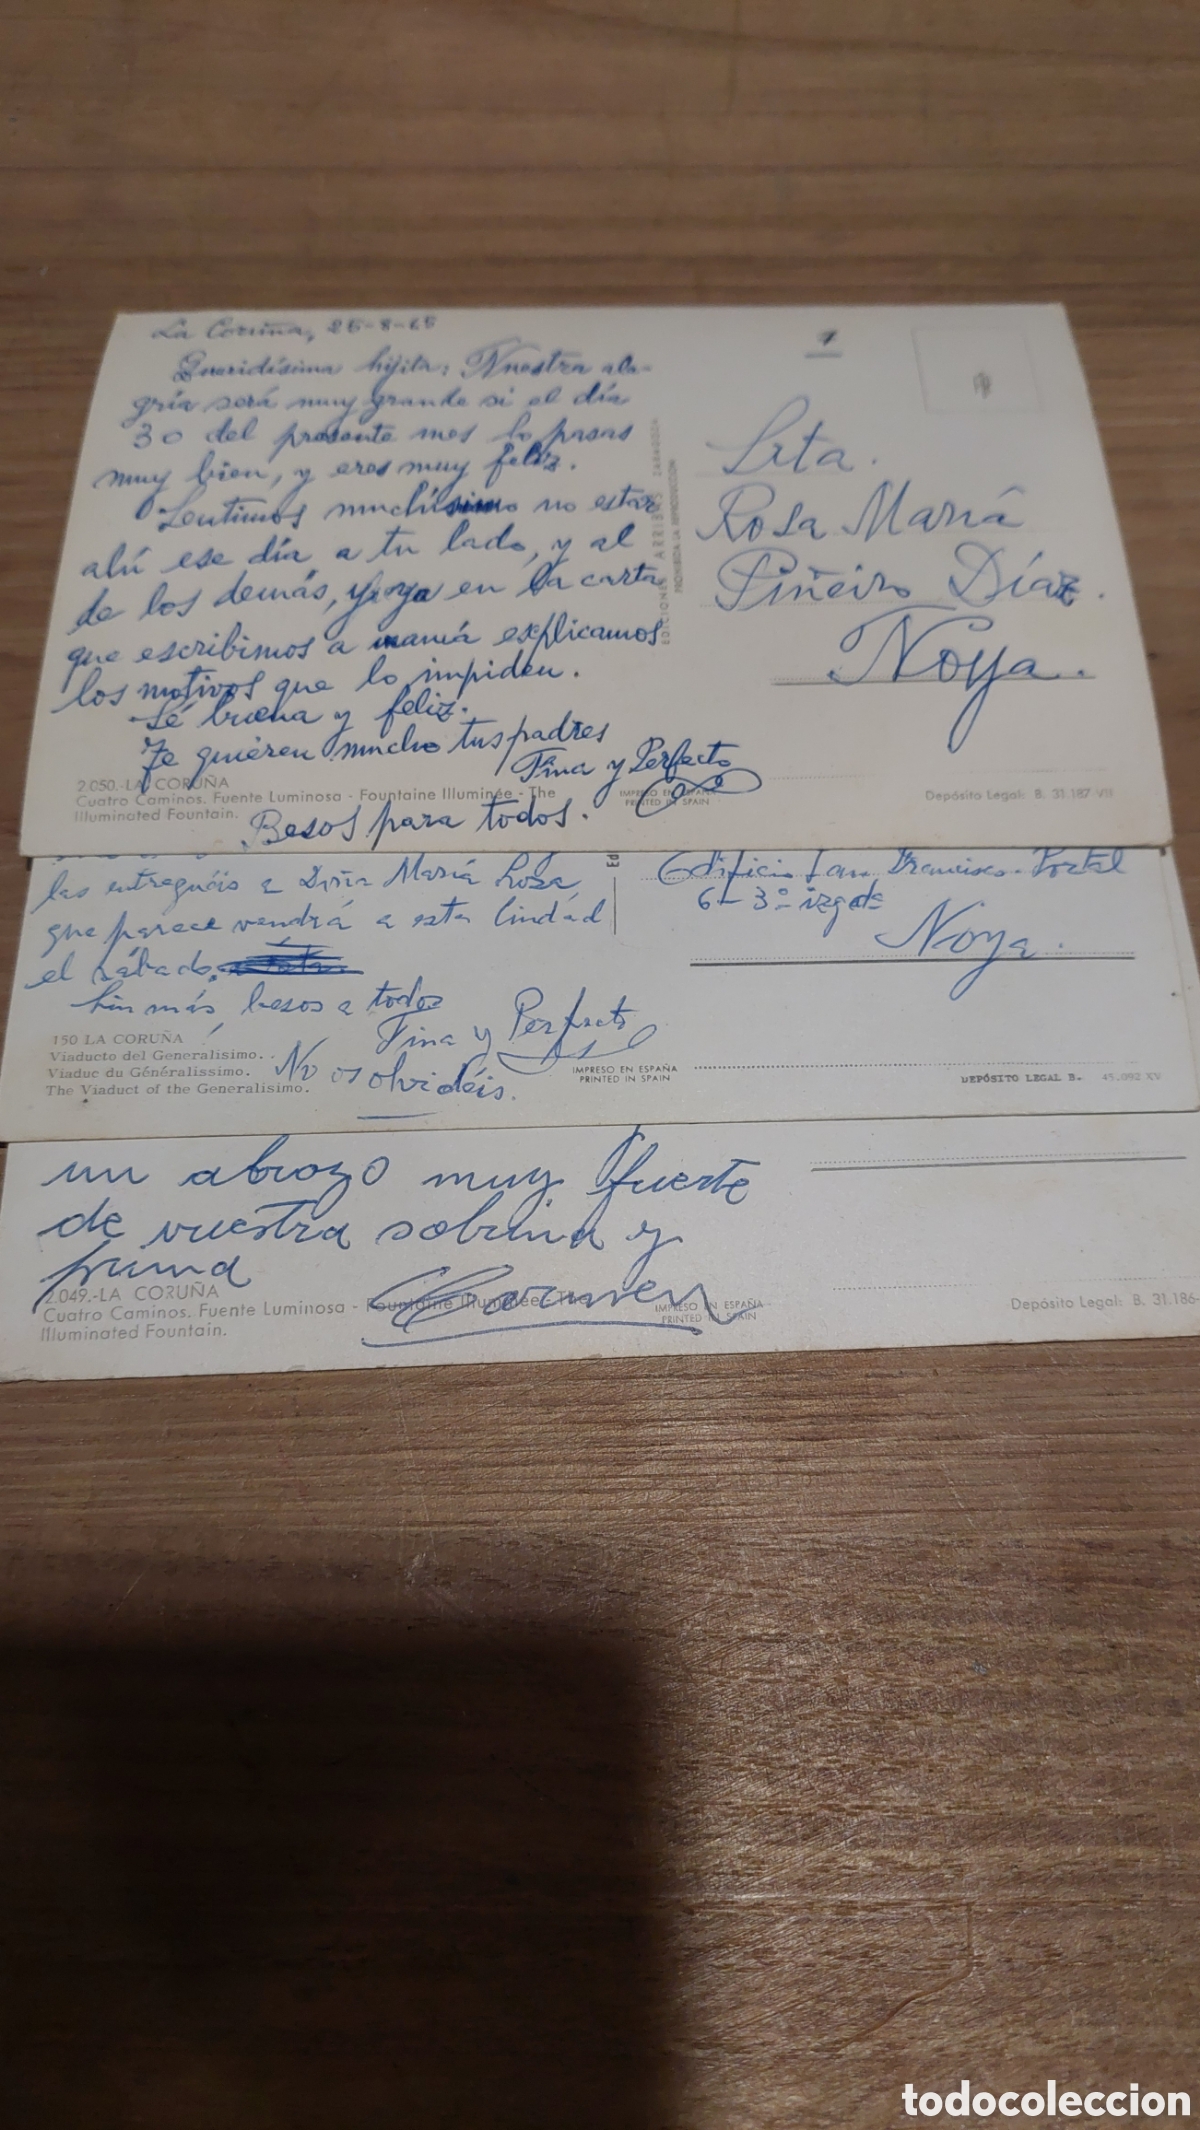 La Coruña, 25-8-65
Queridísima hijita: Nuestra ale-
gría será muy grande si el día
30 del presente mes lo pasas
muy bien, y eres muy feliz.
Sentimos muchísimo no estar
ahí ese día a tu lado, y al
de los demás, y ya en la carta
que escribimos a mamá explicamos
los motivos que lo impiden.
Sé buena y feliz.
Te quieren mucho tus padres
Tina y Perfecto
Besos para todos.
2.050.-LA CORUÑA
Cuatro Caminos. Fuente Luminosa - Fountaine Illuminée - The
Illuminated Fountain.
IMPRESO EN ESPAÑA
PRINTED IN SPAIN
EDICIONES ARRIBAS ZARAGOZA
PROHIBIDA LA REPRODUCCION
Srta.
Rosa María
Piñeiro Díaz.
Noya.
Depósito Legal: B. 31.187-VII
las entreguéis a Doña María Rosa,
que parece vendrá a esta Ciudad
el sábado,
Sin más, besos a todos
Tina y Perfecto
No os olvidéis.
150 LA CORUÑA
Viaducto del Generalísimo.
Viaduc du Généralissimo.
The Viaduct of the Generalisimo.
IMPRESO EN ESPAÑA
PRINTED IN SPAIN
Ed
Edificio San Francisco-Portal
6-3º izqda
Noya.
DEPÓSITO LEGAL B. 45.092 XV
un abrazo muy fuerte
de vuestra sobrina y
prima
Carmen
2.049.-LA CORUÑA
Cuatro Caminos. Fuente Luminosa - Fountaine Illuminée - The
Illuminated Fountain.
IMPRESO EN ESPAÑA
PRINTED IN SPAIN
Depósito Legal: B. 31.186-
todocoleccion